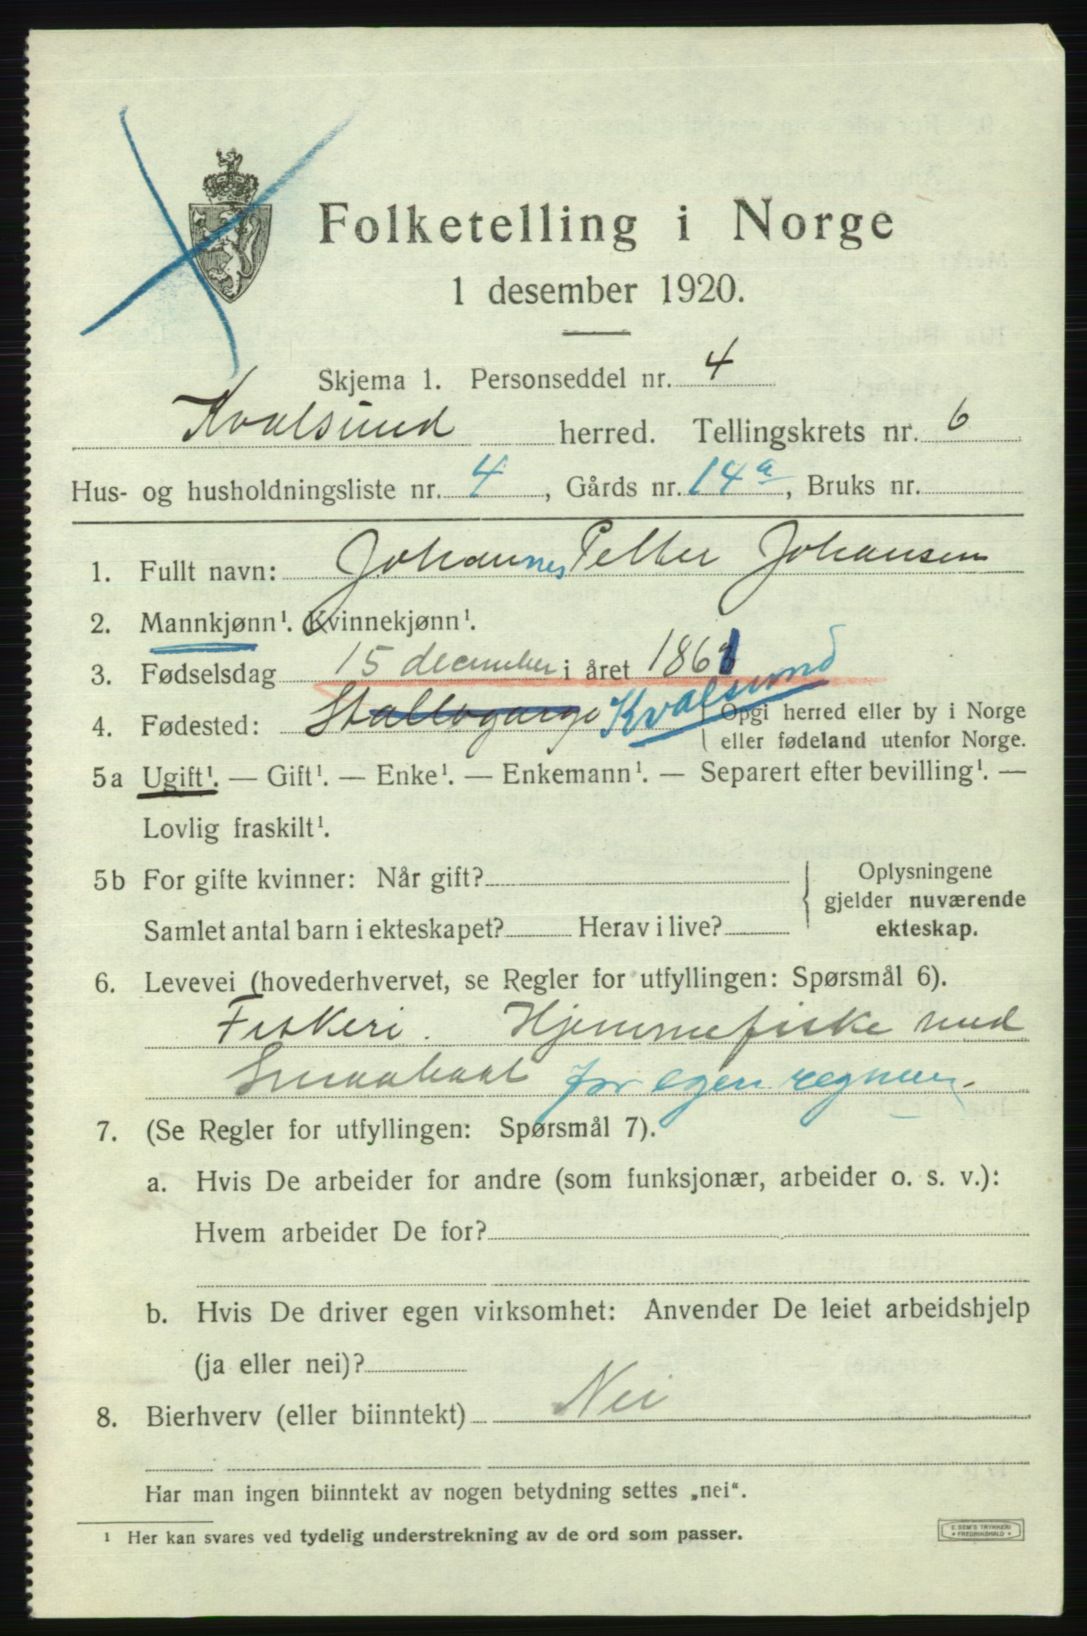 Folketelling i Norge
1 desember 1920.
Skjema 1. Personseddel nr. 4
Kvalsund herred. Tellingskrets nr. 6
Hus- og husholdningsliste nr. 4, Gårds nr. 14a, Bruks nr.
1. Fullt navn: Johannes Petter Johansen
2. Mannkjønn¹. Kvinnekjønn¹.
3. Fødselsdag 15 december i året 1861
4. Fødested: Stallogargo Kvalsund Opgi herred eller by i Norge
eller fødeland utenfor Norge.
5a Ugift¹. — Gift¹. — Enke¹. — Enkemann¹. — Separert efter bevilling¹. —
Lovlig fraskilt¹.
5b For gifte kvinner: Når gift?
Samlet antal barn i ekteskapet? Herav i live?
Oplysningene
gjelder nuværende
ekteskap.
6. Levevei (hovederhvervet, se Regler for utfyllingen: Spørsmål 6).
Fiskeri. Hjemmefiske med
Smaabaat for egen regning.
7. (Se Regler for utfyllingen: Spørsmål 7).
a. Hvis De arbeider for andre (som funksjonær, arbeider o. s. v.):
Hvem arbeider De for?
b. Hvis De driver egen virksomhet: Anvender De leiet arbeidshjelp
(ja eller nei)?
8. Bierhverv (eller biinntekt) Nei
Har man ingen biinntekt av nogen betydning settes „nei“.
¹ Her kan svares ved tydelig understrekning av de ord som passer.
E. SEM'S TRYKKERI
FREDRIKSHALD